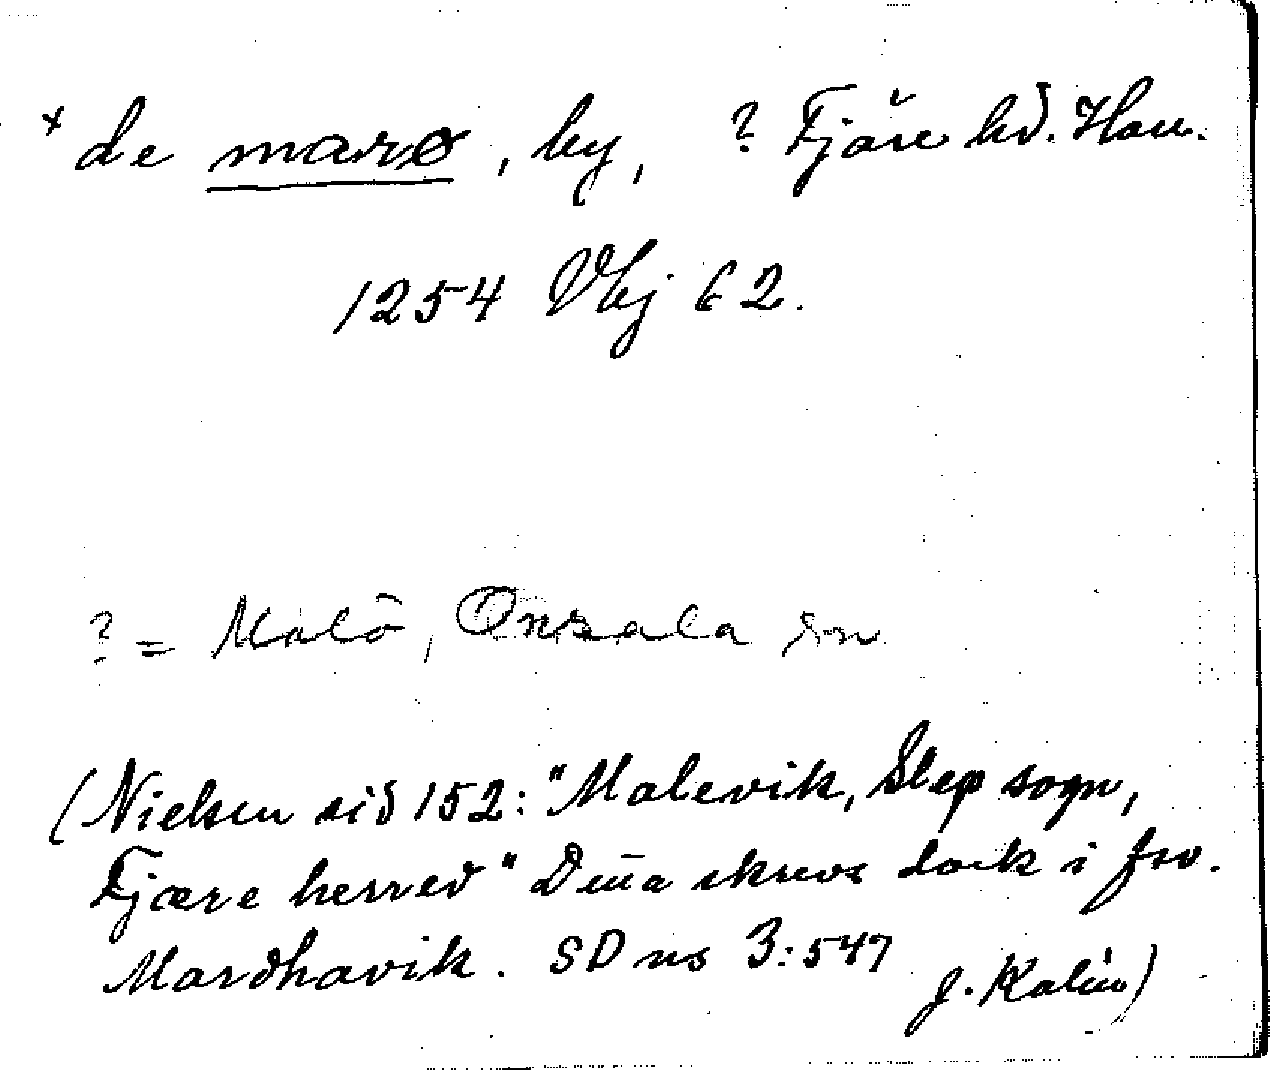 × de marø, by, ? Fjäre hd. Hall.
1254 Vbj 62.
? = Malö, Onsala sn
(Nielsen sid 152: "Malevik, Slep sogn,
Fjære herred" Denna skrevs dock i fsv.
Mardhavik. SD ns 3:547
J. Kalén)